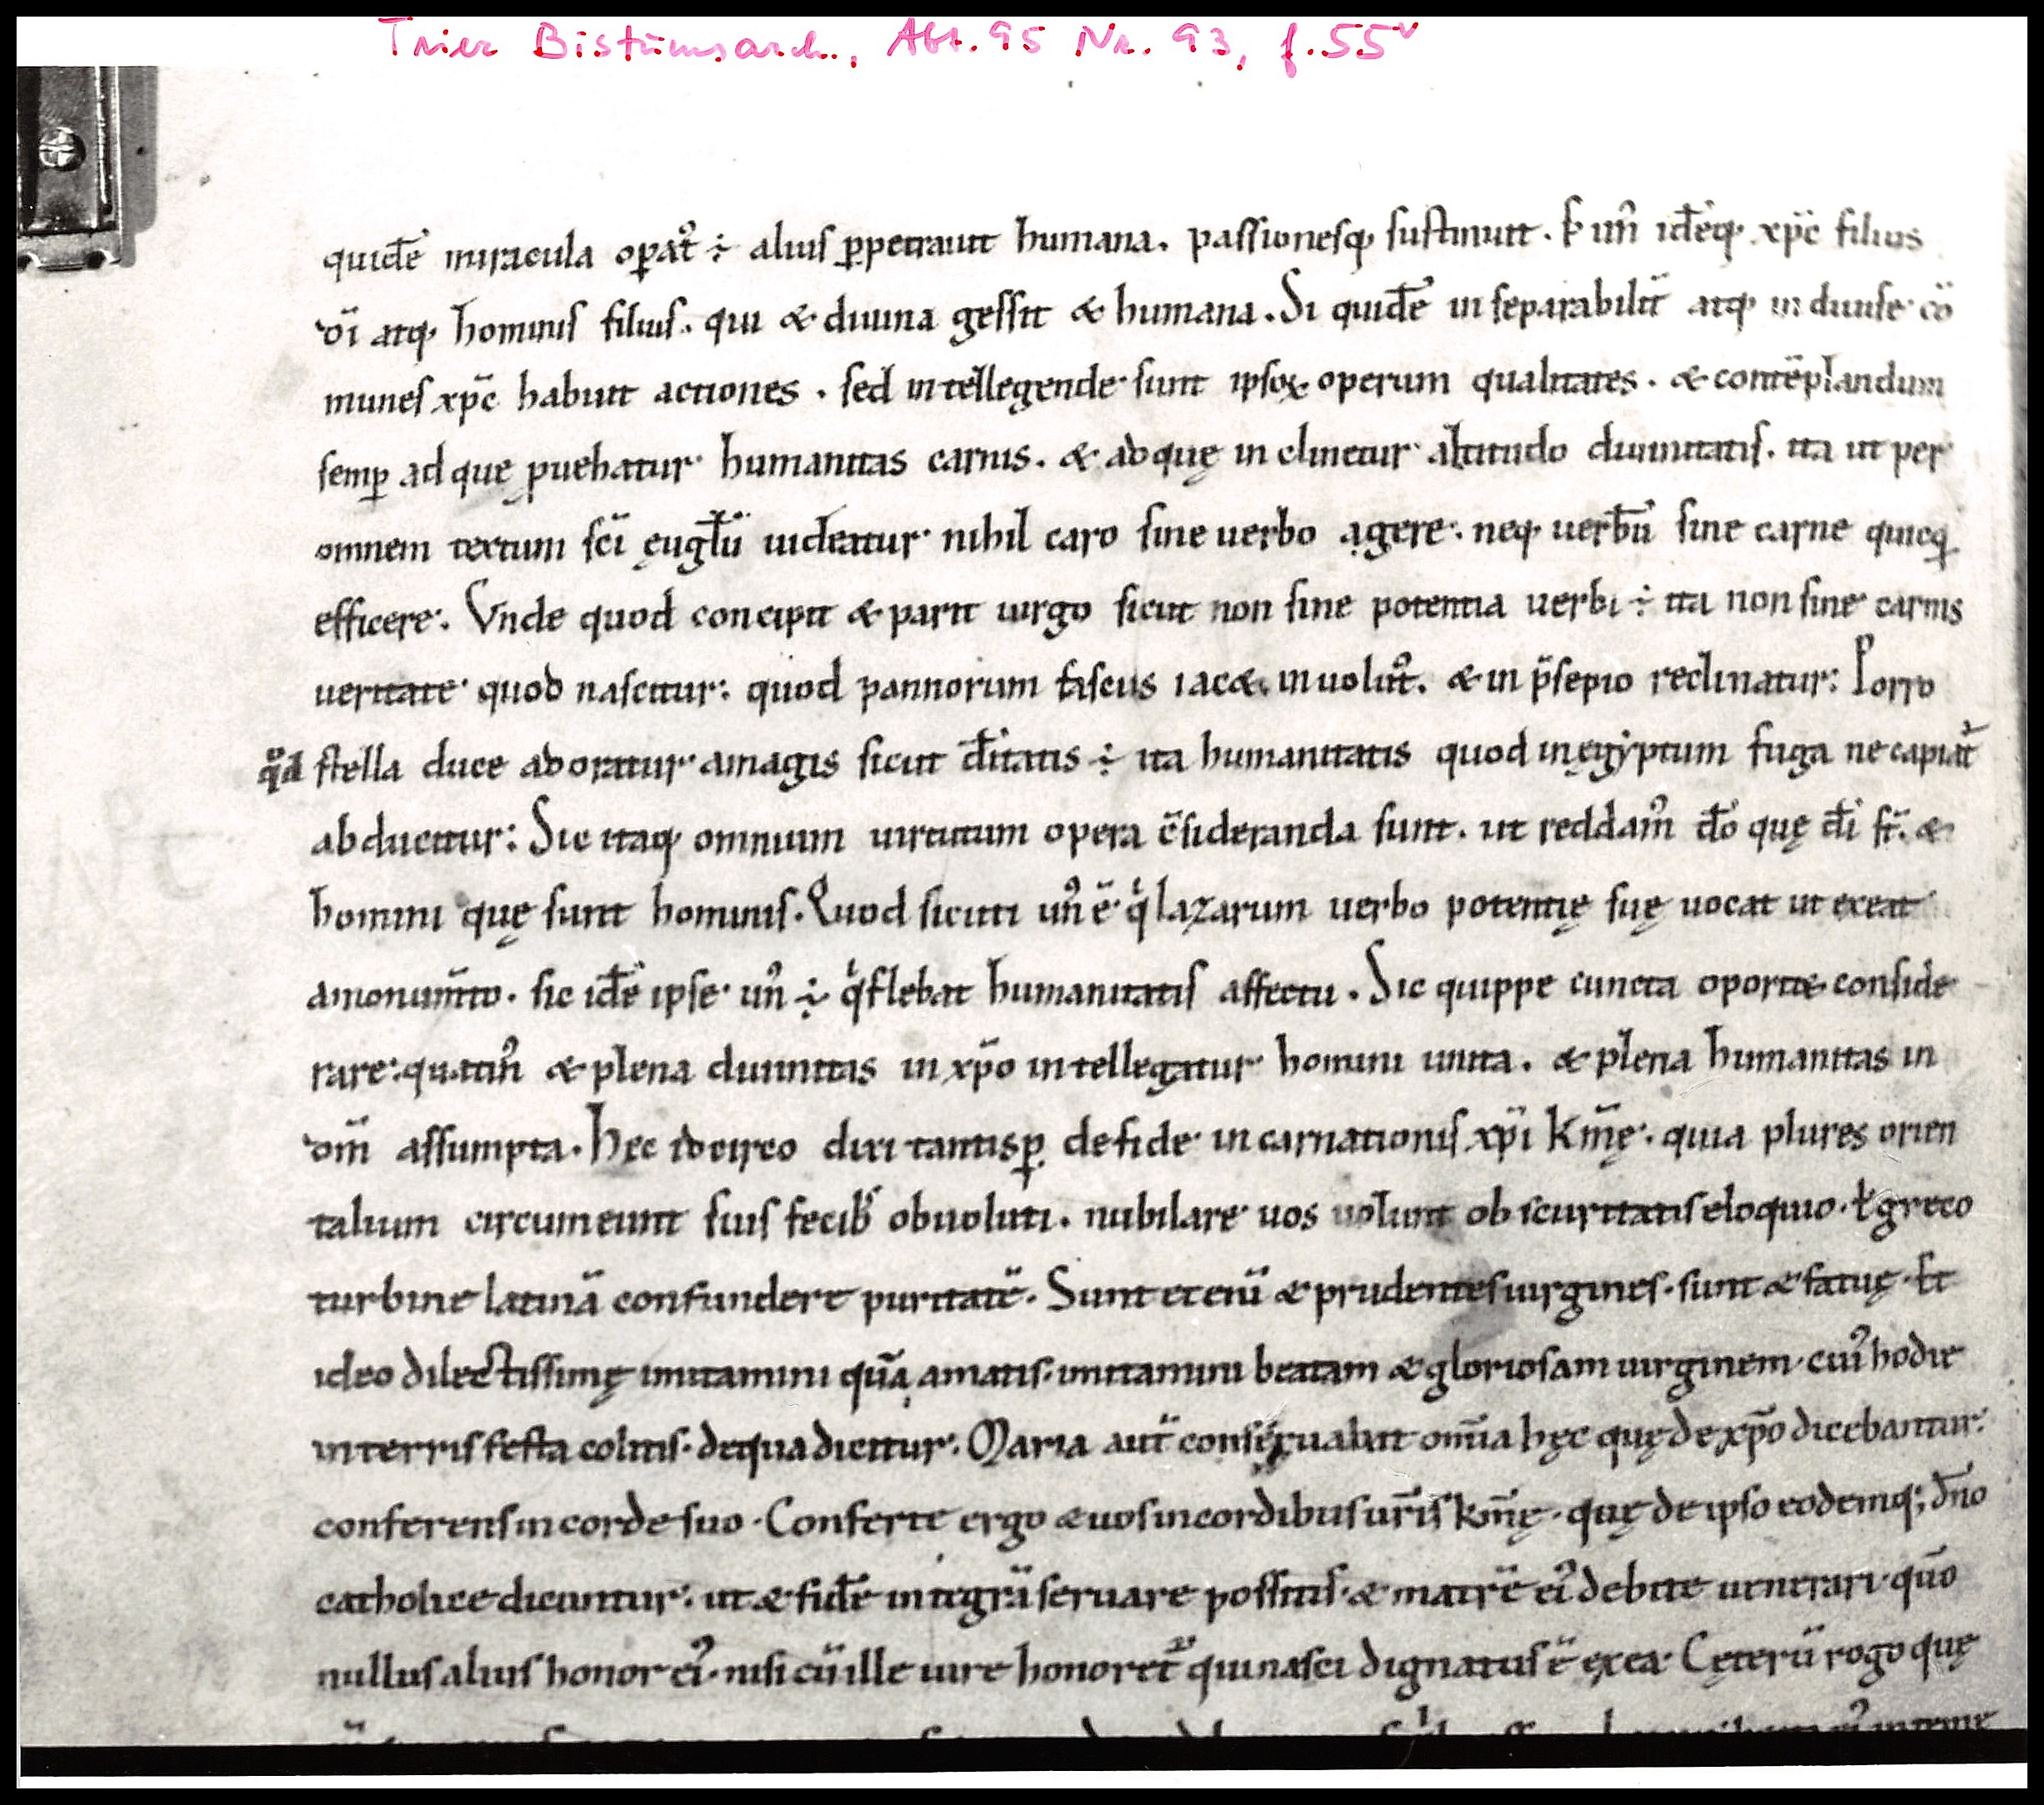 Trier Bistumsarch., Abt. 95 Nr. 93, f. 55v
quidē miracula oꝑat᷒ ⁊ alius ꝑpetrauit humana. passionesq; sustinuit. s; un᷒ idēq; xp̄c filius
dī atq; hominis filius. qui & diuina gessit & humana. Si quidē inseparabilit̄ atq; indiuise cō
munes xp̄c habuit actiones. sed intellegende sunt ipsoꝝ operum qualitates. & contēplandum
semꝑ ad que ꝓuehatur humanitas carnis. & ad quę inclinetur altitudo diuinitatis. ita ut per
omnem textum sc̄i ęuglīi uideatur nihil caro sine uerbo agere. neq; uerbū sine carne quicq̄
efficere. Vnde quod concipit & parit uirgo sicut non sine potentia uerbi ⁊ ita non sine carnis
ueritate quod nascitur: quod pannorum fasciis iac& inuolut᷒. & in p̄sepio reclinatur: Porro
qd̄ stella duce adoratur amagis sicut dēitatis ⁊ ita humanitatis quod inęgẏptum fuga ne capiat᷒
abducitur: Sic itaq; omnium uirtutum opera c̄sideranda sunt. ut reddam᷒ dō quę dī st̄. &
homini quę sunt hominis. Quod sicuti un᷒ ē qͥ lazarum uerbo potentię suę uocat ut exeat
amonum̄to. sic idē ipse un᷒ ÷ qͥ flebat humanitatis affectu. Sic quippe cuncta oport& conside
rare. quatin᷒ & plena diuinitas in xp̄o intellegatur homini unita. & plena humanitas in
dm̄ assumpta. Hęc idcirco dixi tantisꝑ de fide incarnationis xp̄i Km̄ę. quia plures orien
talium circumeunt suis fecib᷒ obuoluti. nubilare uos uolunt obscuritatis eloquio. ł greco
turbine latinā confundere puritatē. Sunt etenī & prudentes uirgines. sunt & fatuę. Et
ideo dilectissimę imitamini quā amatis. imitamini beatam & gloriosam uirginem. cui᷒ hodie
interris festa colitis. dequa dicitur. Maria aut̄ conseruabat omīa hęc quę de xp̄o dicebantur.
conferens in corde suo. Conferte ergo & uos in cordibus ur̄is Km̄ę. quę de ipso eodemq; dn̄o
catholice dicuntur. ut & fidē integrā seruare possitis. & matrē ei᷒ debite uenerari. qūo
nullus alius honor ei᷒. nisi cū ille iure honoret᷒ qui nasci dignatus ē exea. Cęterū rogo quę